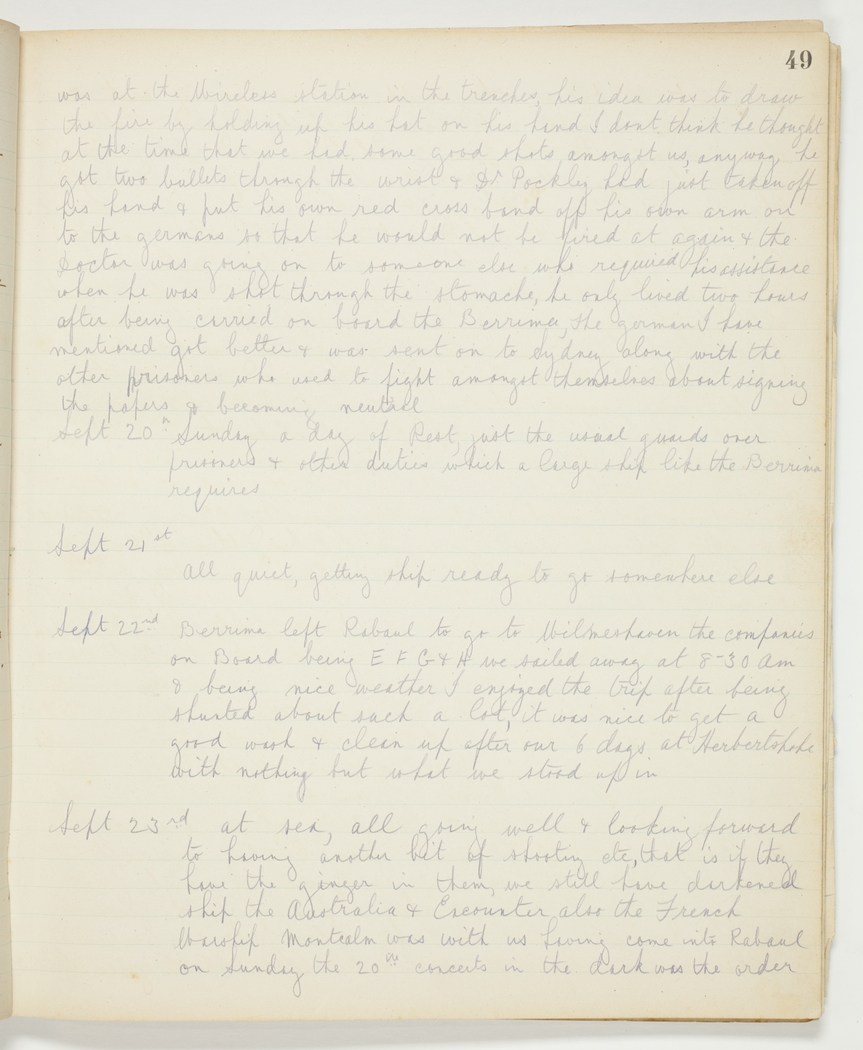 49
was at the Wireless station in the trenches, his idea was to draw
the fire by holding up his hat on his hand I dont think he thought
at the time that we had some good shots amongst us, anyway he
got two bullets through the wrist & Dr Pockley had just taken off
his hand & put his own red cross band off his own arm on
to the germans so that he would not be fired at again & the
Doctor was going on to someone else who required his assistance
when he was shot through the stomache, he only lived two hours
after being carried on board the Berrima, the german I have
mentioned got better & was sent on to Sydney along with the
other prisoners who used to fight amongst themselves about signing
the papers & becoming neutrall
Sept 20th Sunday a day of Rest, just the usual guards over
prisoners & other duties which a large ship like the Berrima
requires
Sept 21st
all quiet, getting ship ready to go somewhere else
Sept 22nd Berrima left Rabaul to go to Wilmeshaven the companies
on Board being E F G & H we sailed away at 8-30 am
& being nice weather I enjoyed the trip after being
shunted about such a lot, it was nice to get a
good wash & clean up after our 6 days at Herbertshohe
with nothing but what we stood up in
Sept 23rd at sea, all going well & looking forward
to having another bit of shooting etc, that is if they
have the ginger in them, we still have darkened
ship the Australia & Encounter also the French
Warship Montcalm was with us having come into Rabaul
on Sunday the 20th concerts in the dark was the order